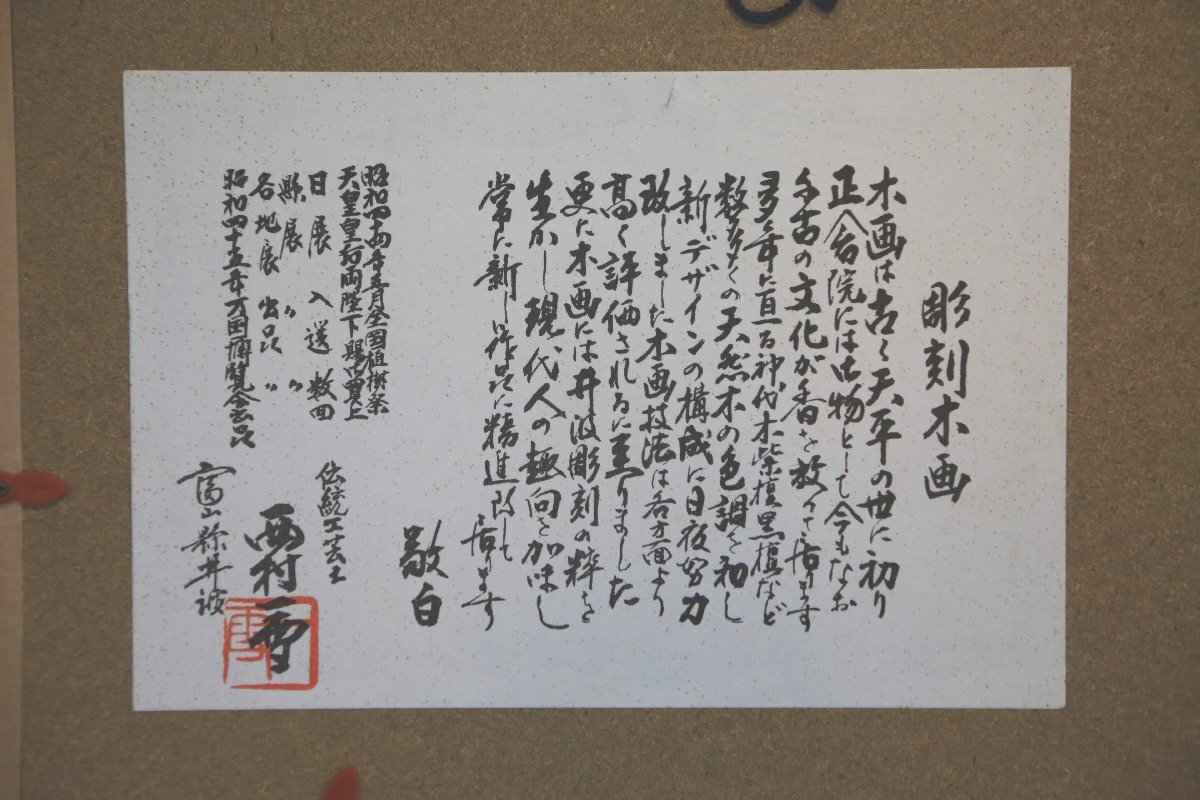 彫刻木画
木画は古く天平の世に初り
正倉院には御物として今もなお
千古の文化が香を放って居ります
多年に亘る神代木紫檀黒檀など
数多くの天然木の色調を和し
新デザインの構成に日夜努力
致しました木画技法は各方面より
高く評価されるに至りました
更に木画には井波彫刻の粋を
生かし現代人の趣向を加味し
常に新し作品に精進致して
居ります
敬白
昭和四十四年五月全国植樹祭
天皇皇后両陛下賜御買上
日展入選数回
県展〃〃
各地展出品〃
昭和四十五年万国博覧会出品
伝統工芸士
西村一雪
富山縣井波